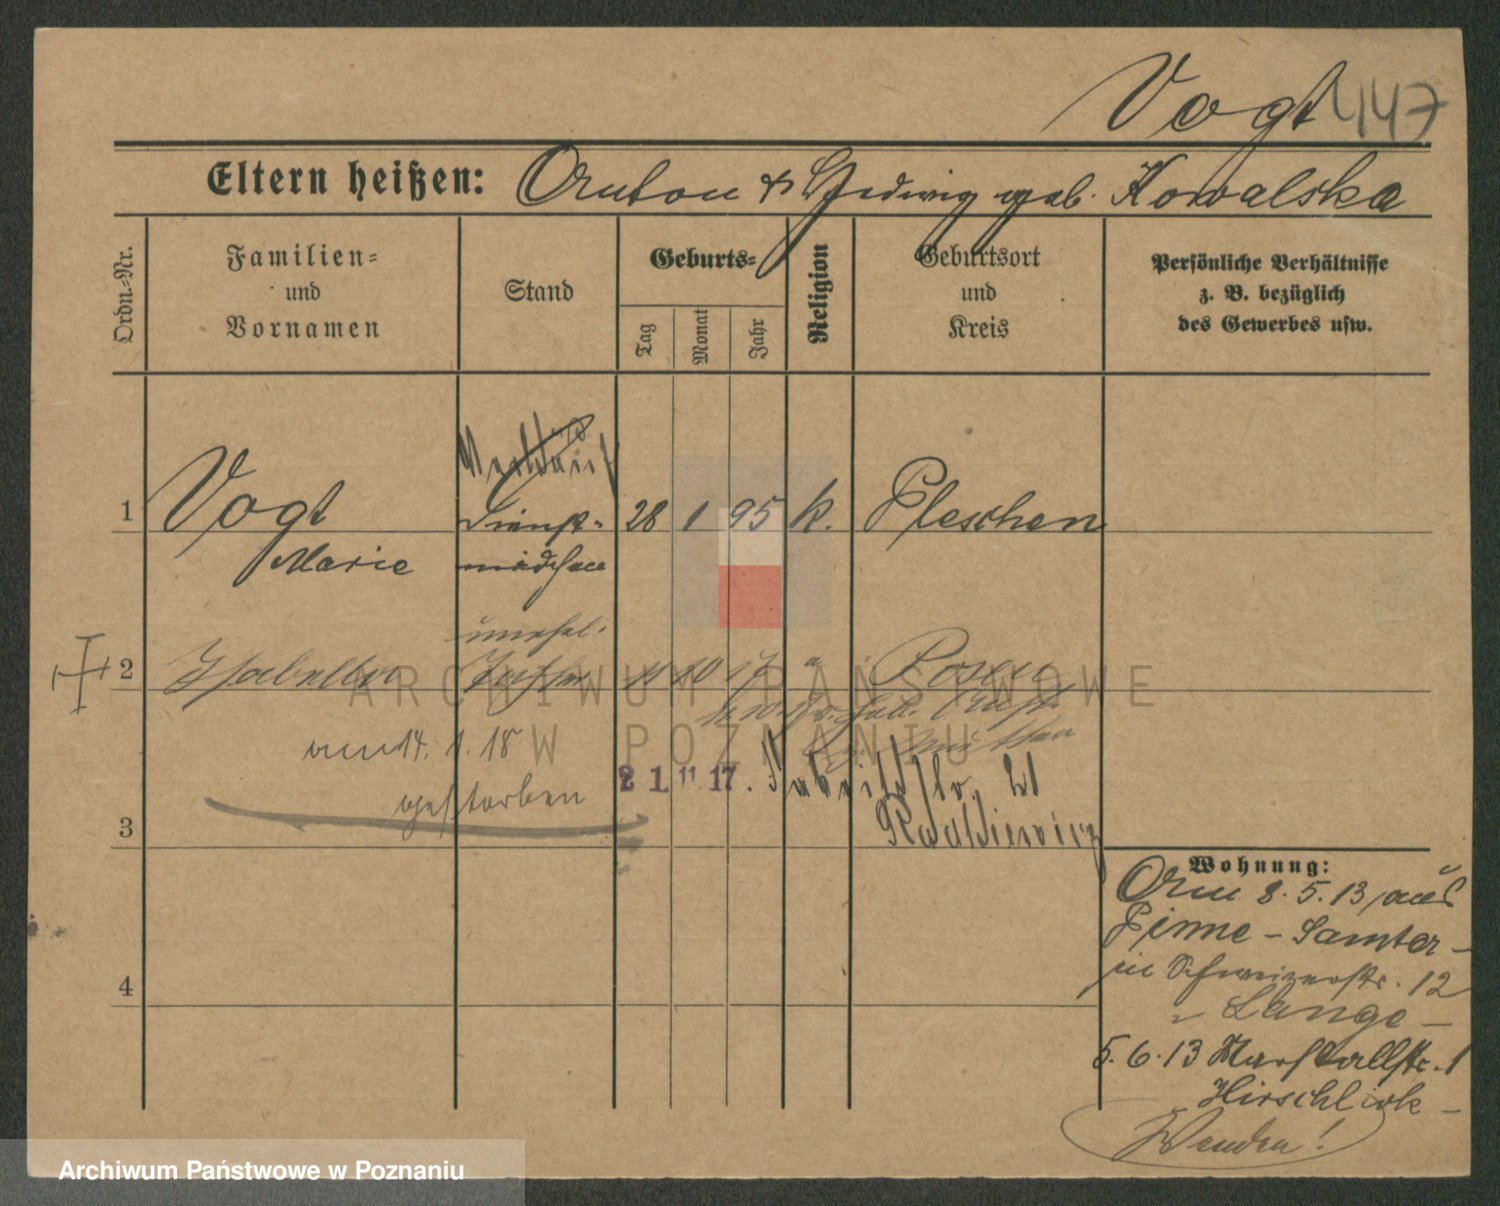 Vogt 447
Eltern heißen: Anton & Hedwig geb. Kowalska
Ordn.=Nr.
Familien=
und
Vornamen
Stand
Geburts=
Tag
Monat
Jahr
Religion
Geburtsort
und
Kreis
Persönliche Verhältnisse
z. B. bezüglich
des Gewerbes usw.
1 Vogt Dienst= 28 1 95 k. Pleschen
Marie mädchen
unehel.
2 Isabella Tochter 11 10 17 " Posen
am 14. 1. 18
gestorben
21. 11. 17.
21
3
4
Wohnung:
Am 8. 5. 13 aus
Pinne - Samter -
in Schweizerstr. 12
Lange -
5. 6. 13 Marstallstr. 1
Hirschlick -
Wenden!
ARCHIWUM PAŃSTWOWE
W POZNANIU
Archiwum Państwowe w Poznaniu